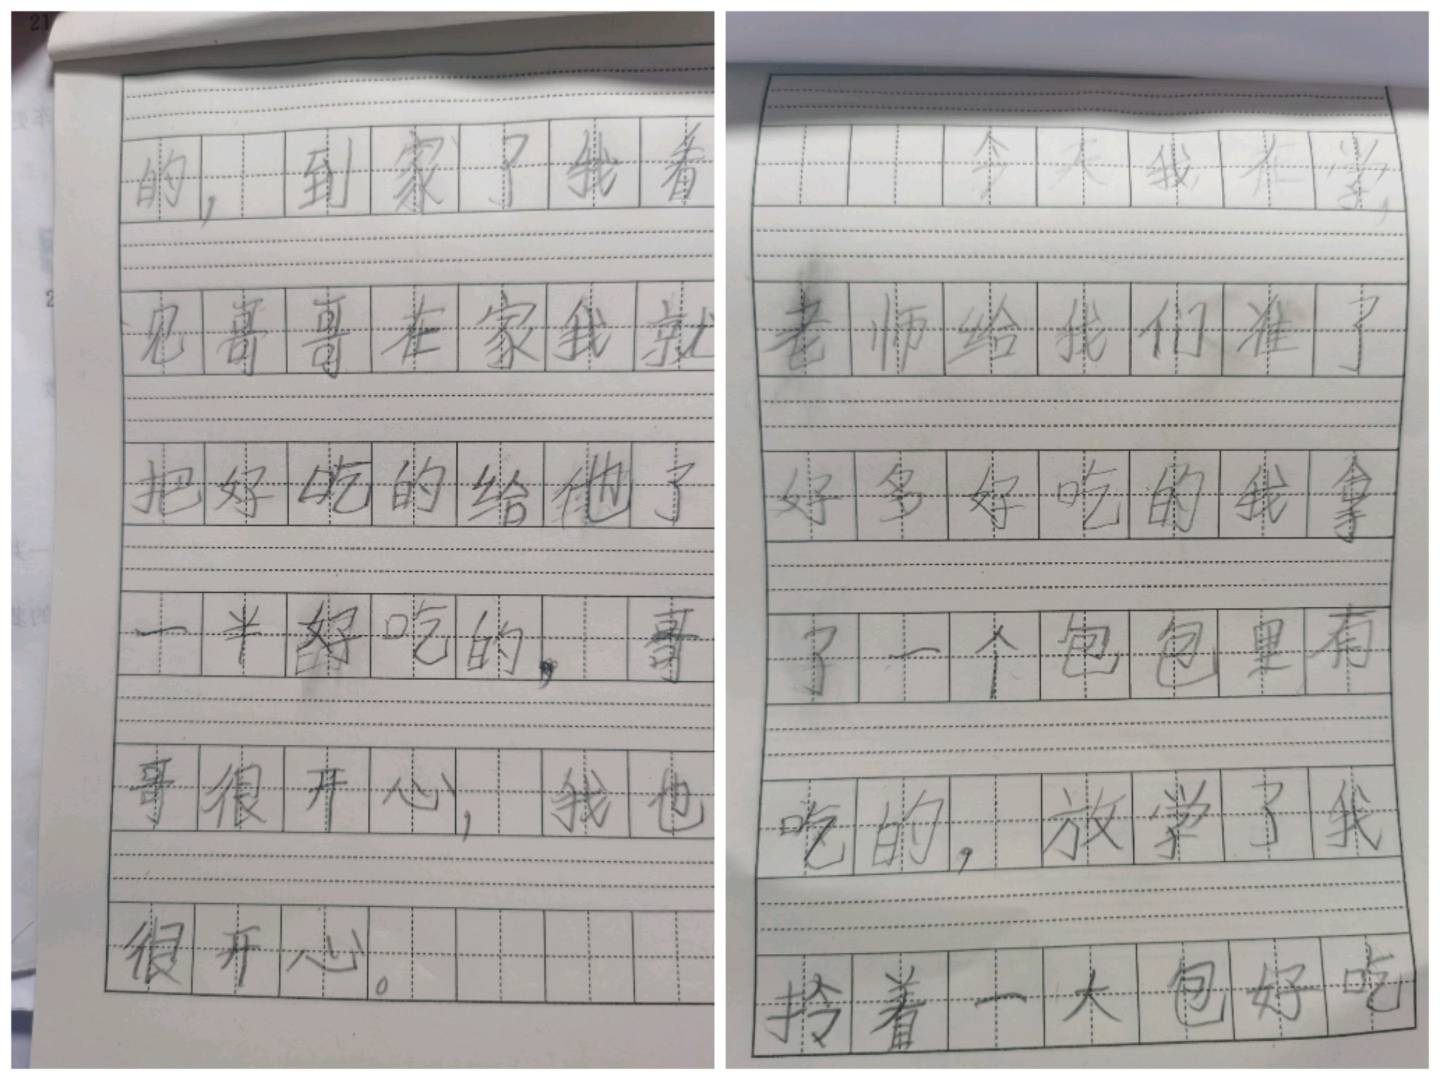 今天我在学,
老师给我们准了
好多好吃的我拿
了一个包包里有
吃的,放学了我
拎着一大包好吃
的,到家了我看
见哥哥在家我就
把好吃的给他了
一半好吃的,哥
哥很开心,我也
很开心。